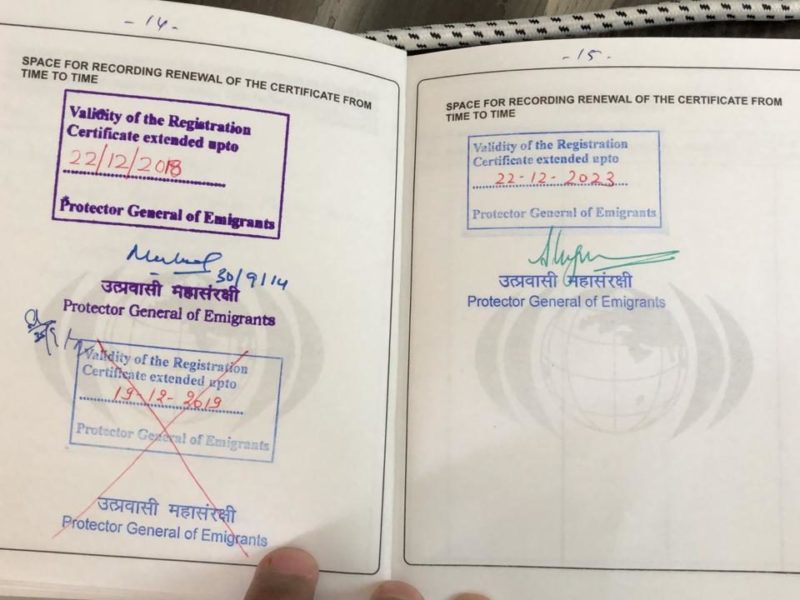 -14-
SPACE FOR RECORDING RENEWAL OF THE CERTIFICATE FROM
TIME TO TIME
Validity of the Registration
Certificate extended upto
22/12/2018
Protector General of Emigrants
30/9/14
उत्प्रवासी महासंरक्षी
Protector General of Emigrants
Validity of the Registration
Certificate extended upto
19-12-2019
Protector General of Emigrants
उत्प्रवासी महासंरक्षी
Protector General of Emigrants
-15-
SPACE FOR RECORDING RENEWAL OF THE CERTIFICATE FROM
TIME TO TIME
Validity of the Registration
Certificate extended upto
22-12-2023
Protector General of Emigrants
उत्प्रवासी महासंरक्षी
Protector General of Emigrants